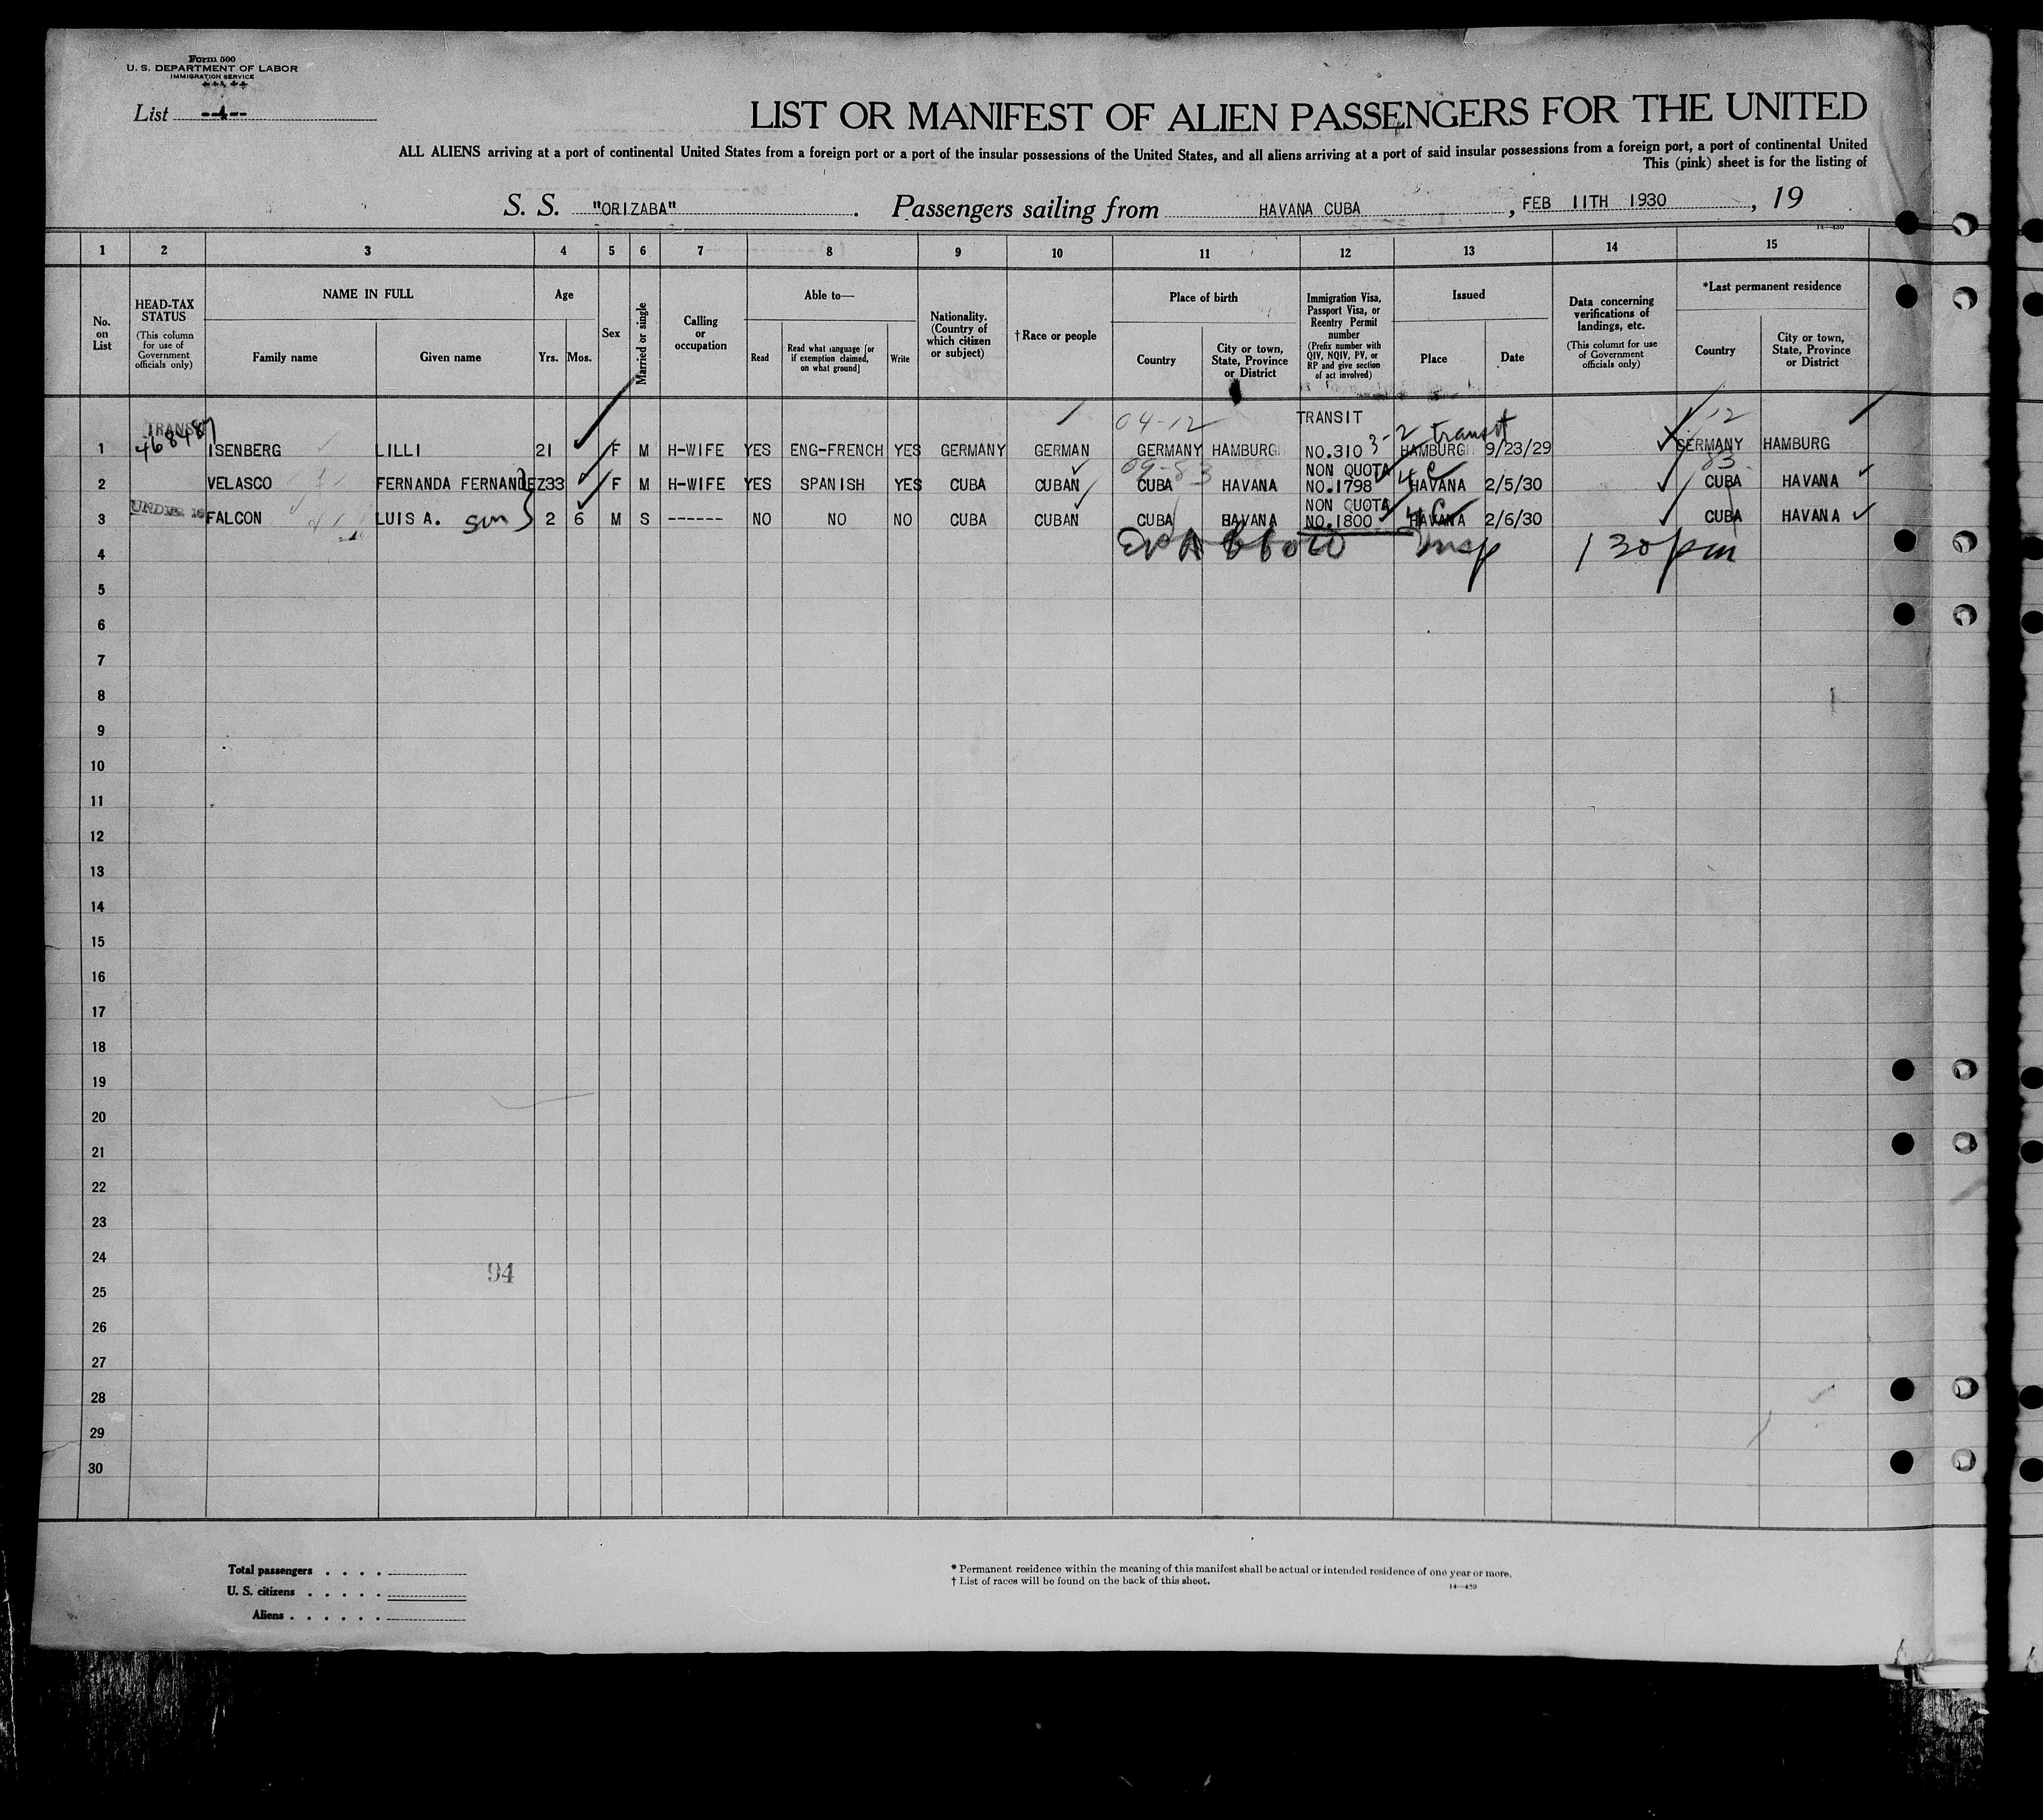 Form 500
U. S. DEPARTMENT OF LABOR
IMMIGRATION SERVICE
List --4--
LIST OR MANIFEST OF ALIEN PASSENGERS FOR THE UNITED
ALL ALIENS arriving at a port of continental United States from a foreign port or a port of the insular possessions of the United States, and all aliens arriving at a port of said insular possessions from a foreign port, a port of continental United
This (pink) sheet is for the listing of
S. S. "ORIZABA". Passengers sailing from HAVANA CUBA, FEB 11TH 1930, 19
14—430
1 2 3 4 5 6 7 8 9 10 11 12 13 14 15
No. on List
HEAD-TAX STATUS
(This column for use of Government officials only)
NAME IN FULL
Family name
Given name
Age
Yrs. Mos.
Sex
Married or single
Calling or occupation
Able to—
Read
Read what language [or if exemption claimed, on what ground]
Write
Nationality. (Country of which citizen or subject)
† Race or people
Place of birth
Country
City or town, State, Province or District
Immigration Visa, Passport Visa, or Reentry Permit number
(Prefix number with QIV, NQIV, PV, or RP and give section of act involved)
Issued
Place
Date
Data concerning verifications of landings, etc.
(This column for use of Government officials only)
*Last permanent residence
Country
City or town, State, Province or District
TRANSIT 04-12 TRANSIT 3-2 transit 12
468487
1 ISENBERG LILLI 21 F M H-WIFE YES ENG-FRENCH YES GERMANY GERMAN GERMANY HAMBURG NO.310 HAMBURG 9/23/29 GERMANY HAMBURG
09-83 NON QUOTA 4 C 83
2 VELASCO FERNANDA FERNANDEZ 33 F M H-WIFE YES SPANISH YES CUBA CUBAN CUBA HAVANA NO.1798 HAVANA 2/5/30 CUBA HAVANA
UNDER 16 NON QUOTA 4 C
3 FALCON LUIS A. son 2 6 M S ------ NO NO NO CUBA CUBAN CUBA HAVANA NO.1800 HAVANA 2/6/30 CUBA HAVANA
4 Insp 1 30 pm
5
6
7
8
9
10
11
12
13
14
15
16
17
18
19
20
21
22
23
24
94
25
26
27
28
29
30
Total passengers . . . .
U. S. citizens . . . . .
Aliens . . . . . .
* Permanent residence within the meaning of this manifest shall be actual or intended residence of one year or more.
† List of races will be found on the back of this sheet.
14—430